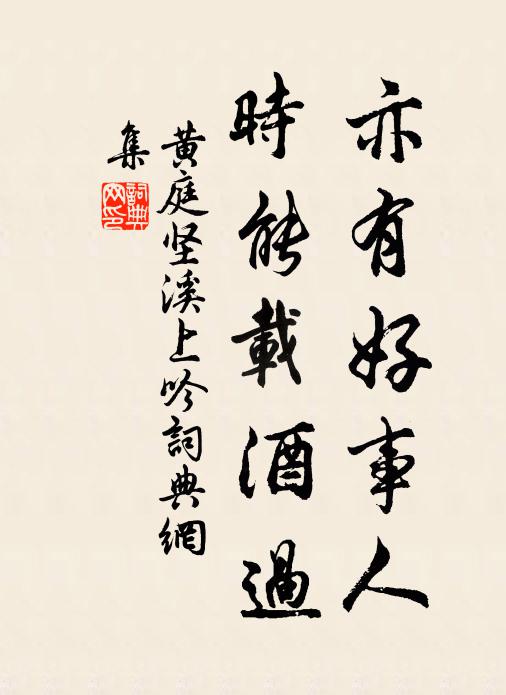 亦有好事人
時能載酒過
黄庭坚溪上吟詞典網
集
詞典网印